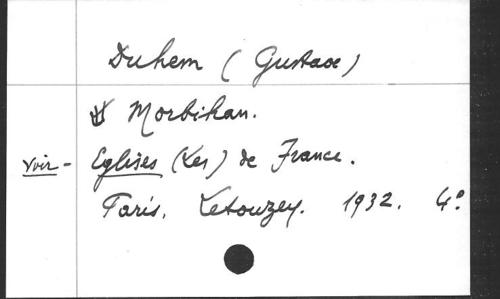 Duhem (Gustave)
Morbihan.
Voir - Eglises (Les) de France.
Paris, Letouzey. 1932. 4°